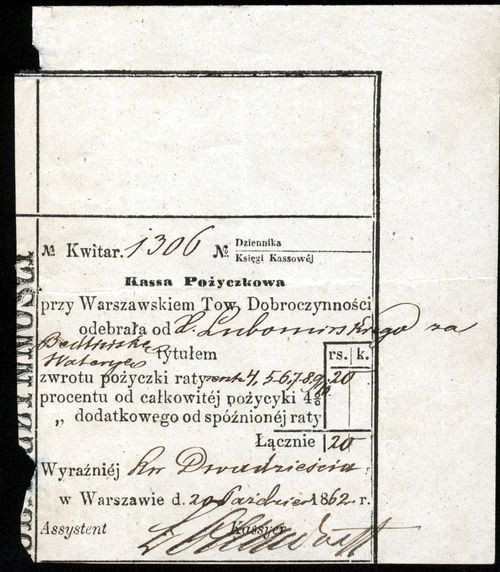 № Kwitar. 1306 № Dziennika
Księgi Kassowéj
Kassa Pożyczkowa
przy Warszawskiem Tow. Dobroczynności
odebrała od Lubomirskiego za
tytułem
rs. k.
zwrotu pożyczki raty 4, 5. 6, 7. 8. 9, 20
procentu od całkowitéj pożycyki 4%
„ dodatkowego od spóźnionéj raty
Łącznie 20
Wyraźniéj Dwadzieścia
w Warszawie d. 20 Październ 1862 r.
Assystent Kassyer